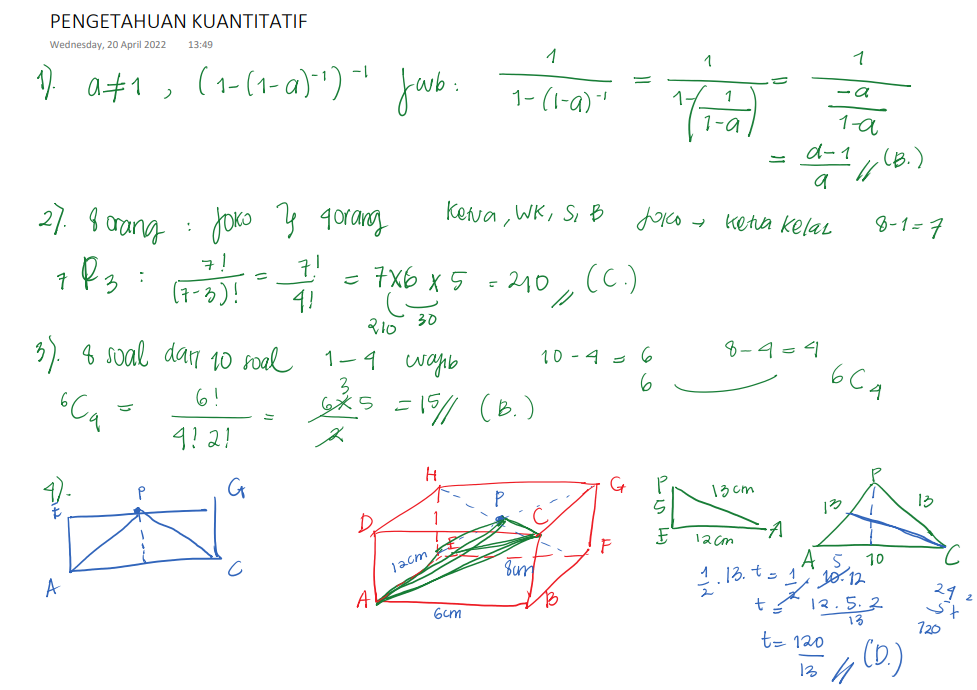 PENGETAHUAN KUANTITATIF
Wednesday, 20 April 2022 13:49
1). a≠1 , (1-(1-a)⁻¹)⁻¹ Jwb : 1/(1-(1-a)⁻¹) = 1/(1-(1/(1-a))) = 1/(-a/(1-a))
= a-1/a // (B.)
2). 8 orang : Joko } 4 orang Ketua, WK, S, B Joko → Ketua Kelas 8-1=7
7P3 : 7!/(7-3)! = 7!/4! = 7×6×5 = 210 // (C.)
210 30
3). 8 soal dari 10 soal 1-4 wajib 10-4=6 8-4=4
6 6C4
6C4 = 6!/4!2! = 6×5/2 = 15// (B.)
3
4).
E P G
A C
H G
P
D C
E F
12cm 8cm
A B
6cm
P 13cm
5
E 12cm A
P
13 13
A 5 10 C
1/2 . 13 . t = 1/2 . 10 . 12
t = 12 . 5 . 2/13
24
5 x
120
t = 120/13 // (D.)